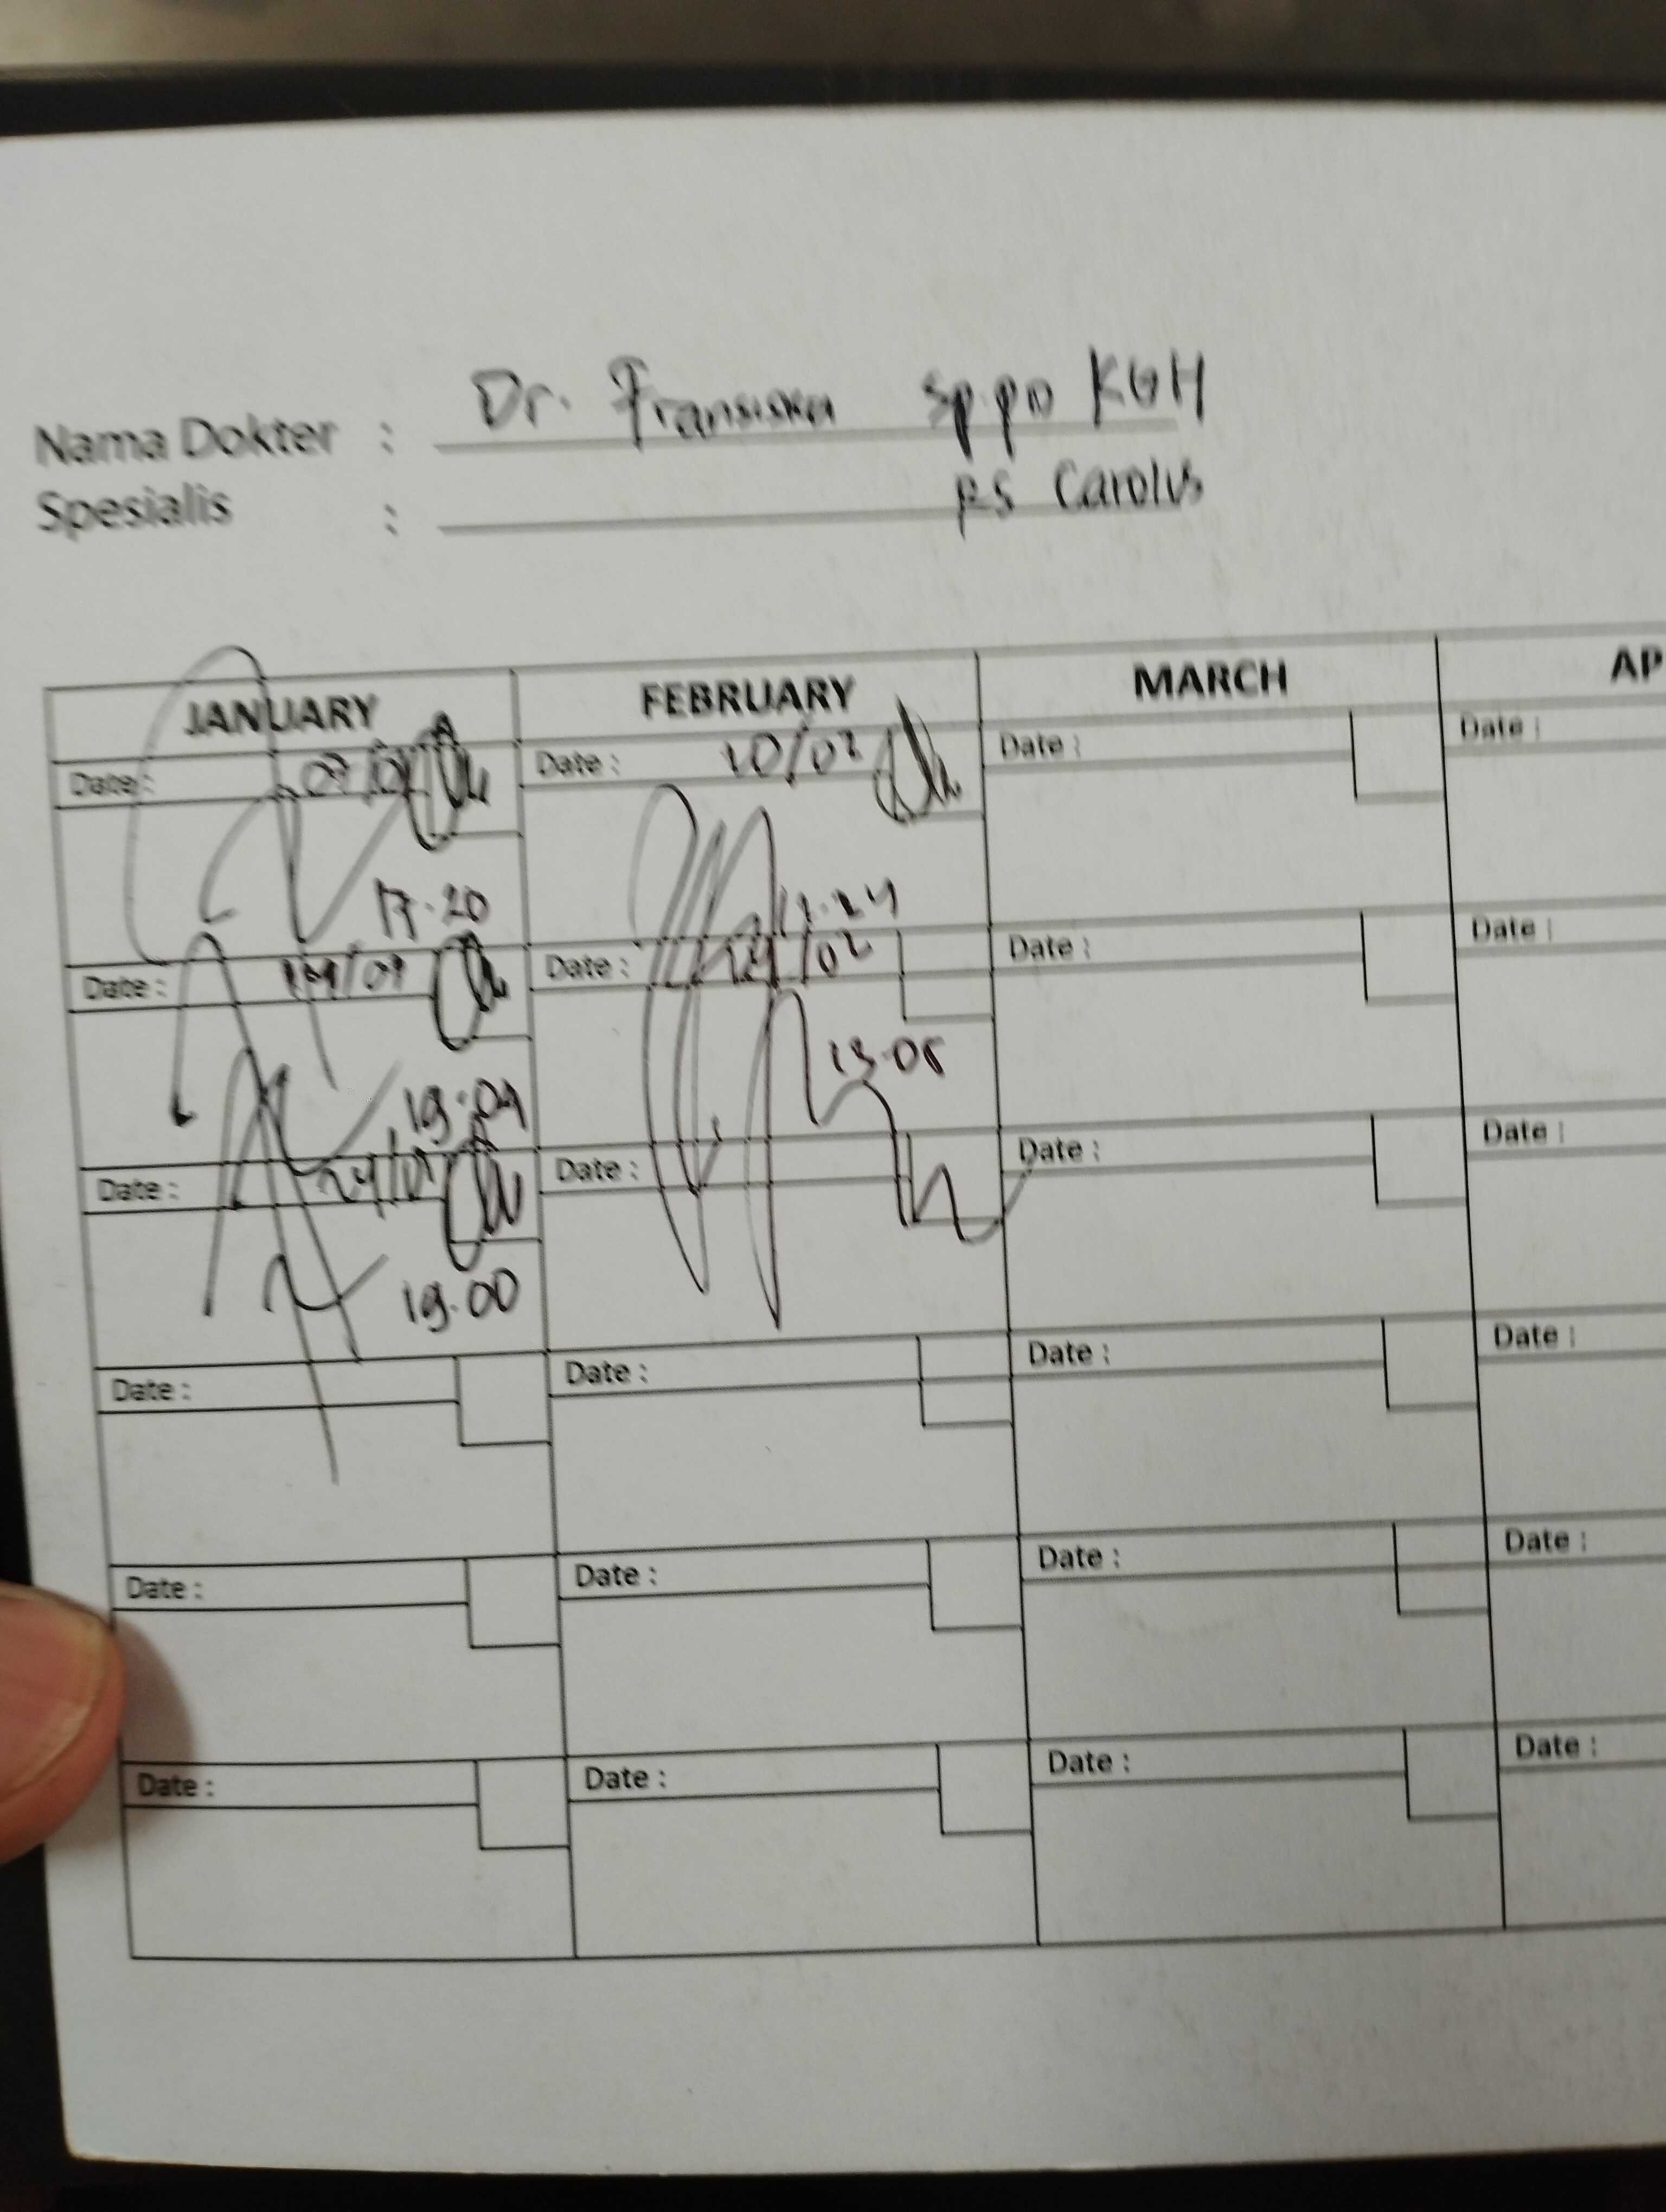 Nama Dokter : Dr. Fransiska Sp.PD KGH
Spesialis : RS Carolus
JANUARY FEBRUARY MARCH AP
Date : 07/01 Date : 10/02 Date : Date :
17.20
Date : Date : 24/02 Date : Date :
19.04 13.05
Date : 24/01 Date : Date : Date :
19.00
Date : Date : Date : Date :
Date : Date : Date : Date :
Date : Date : Date : Date :